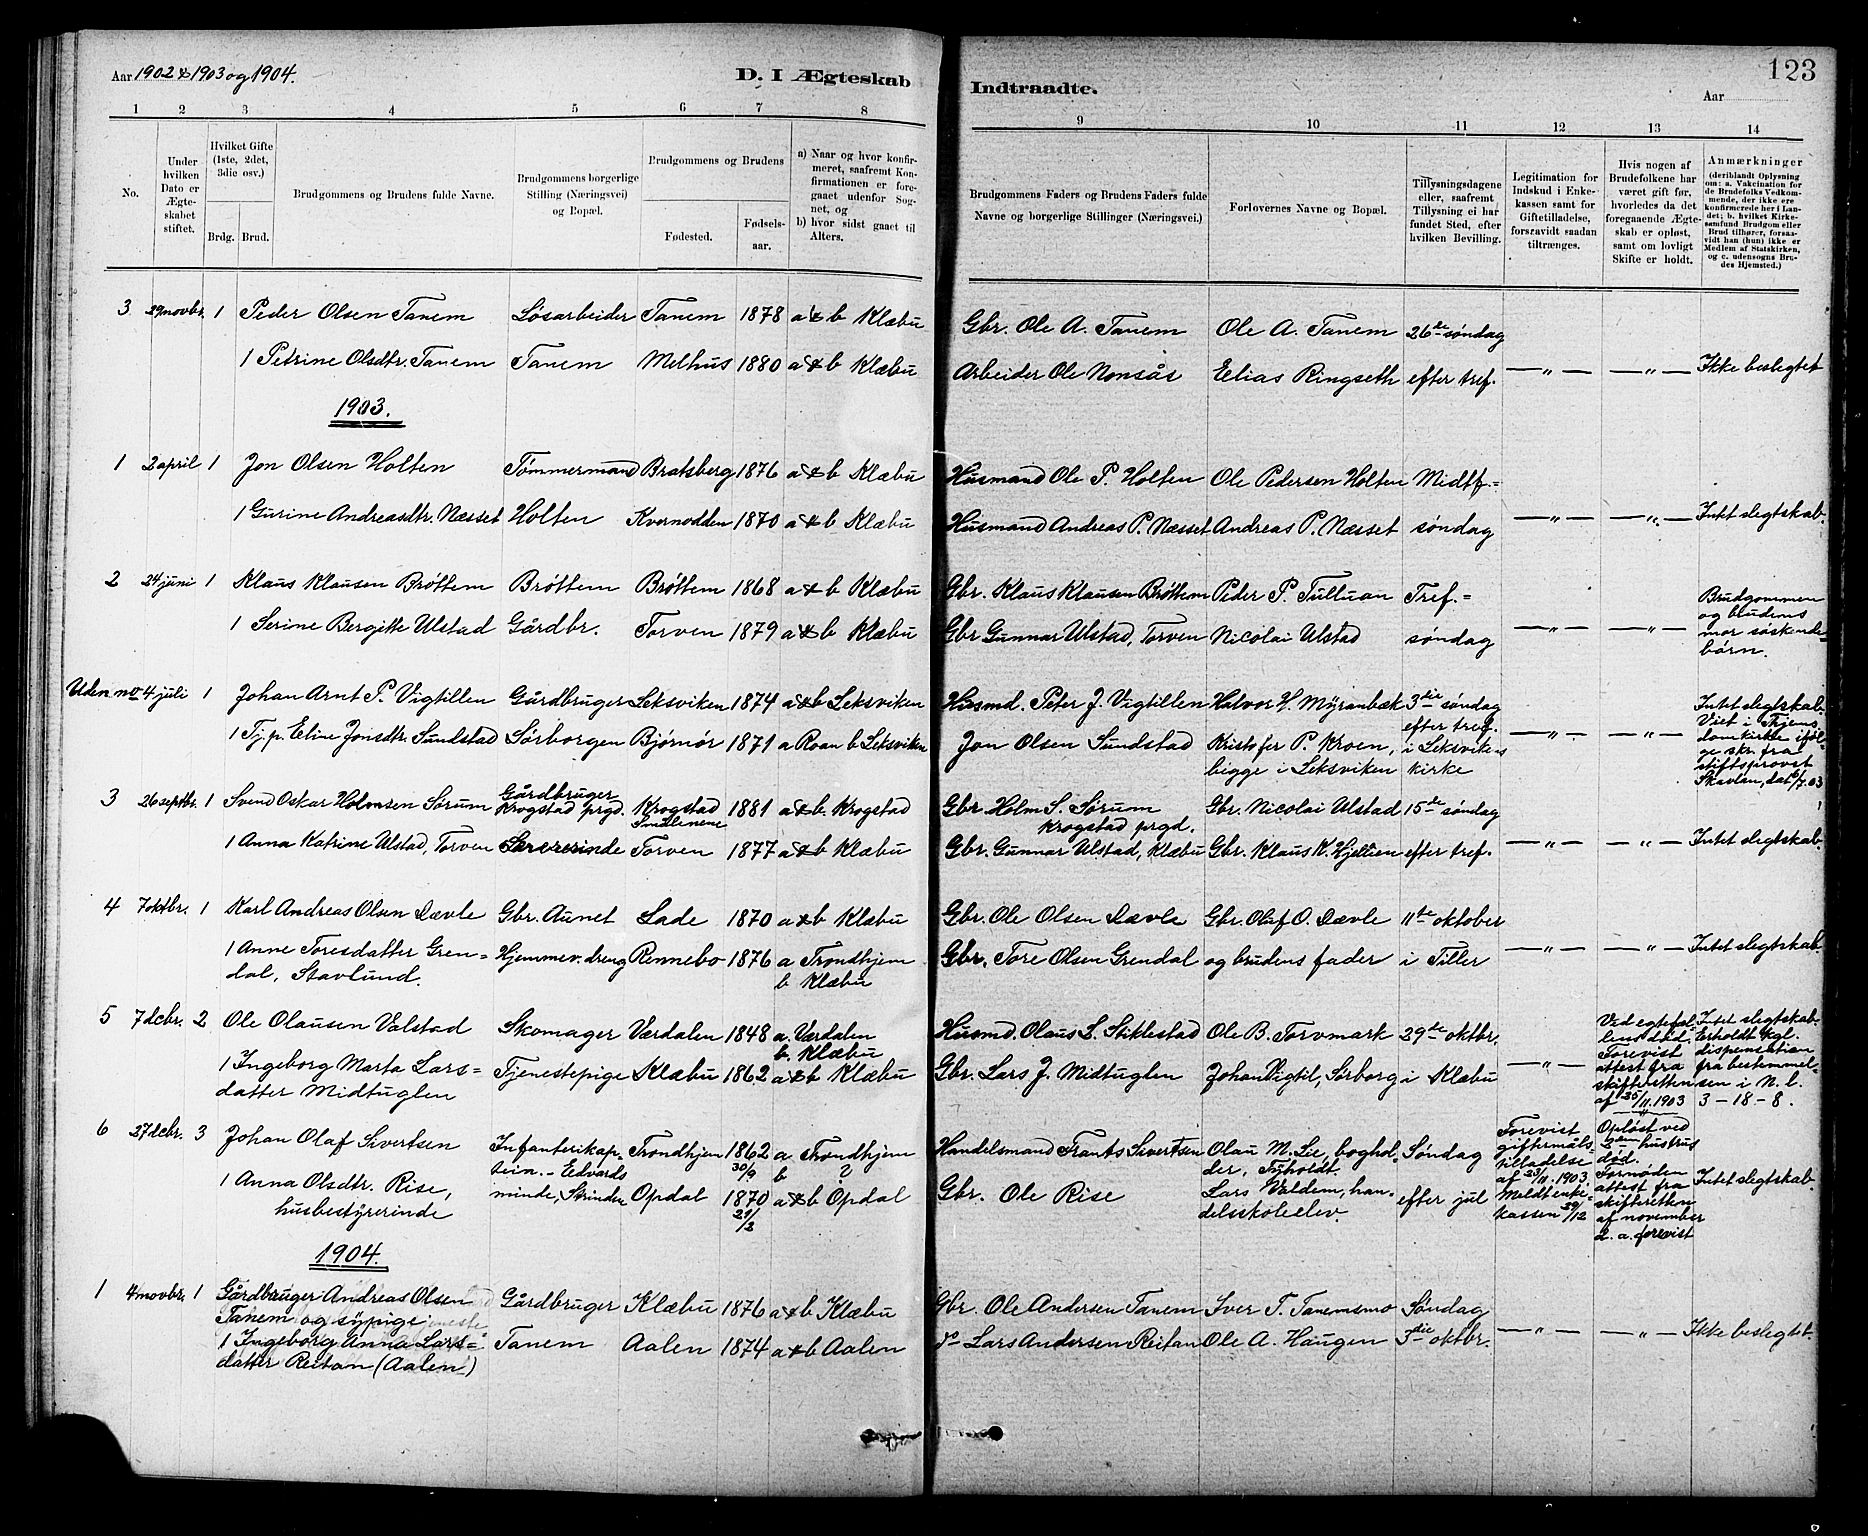 Aar 1902 & 1903 og 1904.
D. I Ægteskab Indtraadte.
123
Aar
1 2 3 4 5 6 7 8 9 10 11 12 13 14
No.
Under hvilken Dato er Ægteskabet stiftet.
Hvilket Gifte (1ste, 2det, 3die osv.)
Brdg. Brud.
Brudgommens og Brudens fulde Navne.
Brudgommens borgerlige Stilling (Næringsvei) og Bopæl.
Brudgommens og Brudens
Fødested. Fødselsaar.
a) Naar og hvor konfirmeret, saafremt Konfirmationen er foregaaet udenfor Sognet, og
b) hvor sidst gaaet til Alters.
Brudgommens Faders og Brudens Faders fulde Navne og borgerlige Stillinger (Næringsvei.)
Forlovernes Navne og Bopæl.
Tillysningsdagene eller, saafremt Tillysning ei har fundet Sted, efter hvilken Bevilling.
Legitimation for Indskud i Enkekassen samt for Giftetilladelse, forsaavidt saadan tiltrænges.
Hvis nogen af Brudefolkene har været gift før, hvorledes da det foregaaende Ægteskab er opløst, samt om lovligt Skifte er holdt.
Anmærkninger (deriblandt Oplysning om: a. Vakcination for de Brudefolks Vedkommende, der ikke ere konfirmerede her i Landet; b. hvilket Kirkesamfund Brudgom eller Brud tilhører, forsaavidt han (hun) ikke er Medlem af Statskirken, og c. udensogns Brudes Hjemsted.)
3 29 novbr. 1 Peder Olsen Tanem Løsarbeider Tanem 1878 a & b Klæbu Gbr. Ole A. Tanem Ole A. Tanem 26de søndag
1 Petrine Olsdtr. Tanem Tanem Melhus 1880 a & b Klæbu Arbeider Ole Nonsås Eelias Ringseth efter tref. — „ — — „ — Ikke beslegtet
1903.
1 2 april 1 Jon Olsen Holten Tømmermand Bratsberg 1876 a & b Klæbu Husmand Ole P. Holten Ole Pedersen Holten Midtf=
1 Gurine Andreasdtr. Næsset Holten Kvernodden 1870 a & b Klæbu Husmand Andreas P. Næsset Andreas P. Næsset søndag — „ — — „ — Intet slegtskab.
2 24 juni 1 Klaus Klausen Brøttem Brøttem Brøttem 1868 a & b Klæbu Gbr. Klaus Klausen Brøttem Peder P. Tulluan Tref.= Brudgommen
1 Serine Bergitte Ulstad Gårdbr. Torven 1879 a & b Klæbu Gbr Gunnar Ulstad, Torven Nicolai Ulstad søndag — „ — — „ — og brudens mor søskende= børn.
Uden no 4 juli 1 Johan Arnt P. Vigtillen Gårdbruger Leksviken 1874 a & b Leksviken Husmd. Peter J. Vigtillen Halvor H. Myranbæk 3die søndag Intet slegtskab.
1 Tj. p. Eline Jonsdtr. Sundstad Sørborgen Bjørnør 1871 a Roan b Leksviken Jon Olsen Sundstad Kristofer P. Kroen, efter tref. i Leksviken — „ — — „ — Viet i Trjems domkirke iføl=
begge i Leksviken kirke ge skr. fra stiftsprovst Skavlan, dat 6/7.03
3 26 septbr. 1 Svend Oskar Holmsen Sørum Gårdbruger Krogstad prgd. Krogstad Smålenene 1881 a & b. Krogstad Gbr. Holm S. Sørum Krogstad prgd. Gbr. Nicolai Ulstad 15de søndag
1 Anna Katrine Ulstad, Torven Lærerinde Torven 1877 a & b Klæbu Gbr. Gunnar Ulstad, Klæbu Gbr. Klaus K. Hjellien efter tref. — „ — — „ — Intet slegtskab.
4 7 oktbr. 1 Karl Andreas Olsen Dævle Gbr. Aunet Lade 1870 a & b Klæbu Gbr. Ole Olsen Dævle Gbr. Oluf O. Dævle 11te oktober
1 Anne Toresdatter Gren= Hjemmev. dreng Rennebo 1876 a Trondhjem Gbr. Tore Olsen Grendal og brudens fader i Tiller — „ — — „ — Intet slegtskab.
dal, Stavlund. b Klæbu
5 7 dcbr. 2 Ole Olausen Valstad Skomager Værdalen 1848 a. Værdalen b. Klæbu Husmd. Olaus L. Stiklestad Ole B. Torvmark 29de oktbr. Ved egtefæl= lens død. Intet slegtskab.
1 Ingeborg Marta Lars= Tjenestepige Klæbu 1862 a & b Klæbu Gbr. Lars J. Midtuglen Johan Vigtil, Sørborg i Klæbu — „ — Forevist attest fra Erholdt kgl. dispensation
datter Midtuglen skifteretten af 30/11. 1903 fra bestemmel= sen i N. l. 3 – 18 – 8.
6 27 dcbr. 3 Johan Olaf Sivertsen Infanterikap= tein. – Edvards Trondhjem 1862 30/9 a Trondhjem b ? Handelsmand Frants Sivertsen Olau M. Lie, boghol= der, Søndag Forevist giftermåls= tilladelse Opløst ved 2den hustrus død.
1 Anna Olsdtr. Rise, minde, Strinden Opdal 1870 21/3 a & b Opdal Gbr. Ole Rise Lars Valdem, han= efter jul af 23/11. 1903. Meldt enke= Fornøden attest fra Intet slegtskab.
husbestyrerinde delsskoleelev. kassen 29/12 skifteretten af november d. a. forevist
1904.
1 4 novbr. 1 Gårdbruger Andreas Olsen Gårdbruger Klæbu 1876 a & b Klæbu Gbr. Ole Andersen Tanem Iver T. Tanemsmo Søndag
Tanem og sypige
1 Ingeborg Anna Lars= Tanem Aalen 1874 a & b Aalen Lars Andersen Reitan Ole A. Haugen 3die oktbr. — „ — — „ — Ikke beslegtet.
datter Reitan (Aalen)